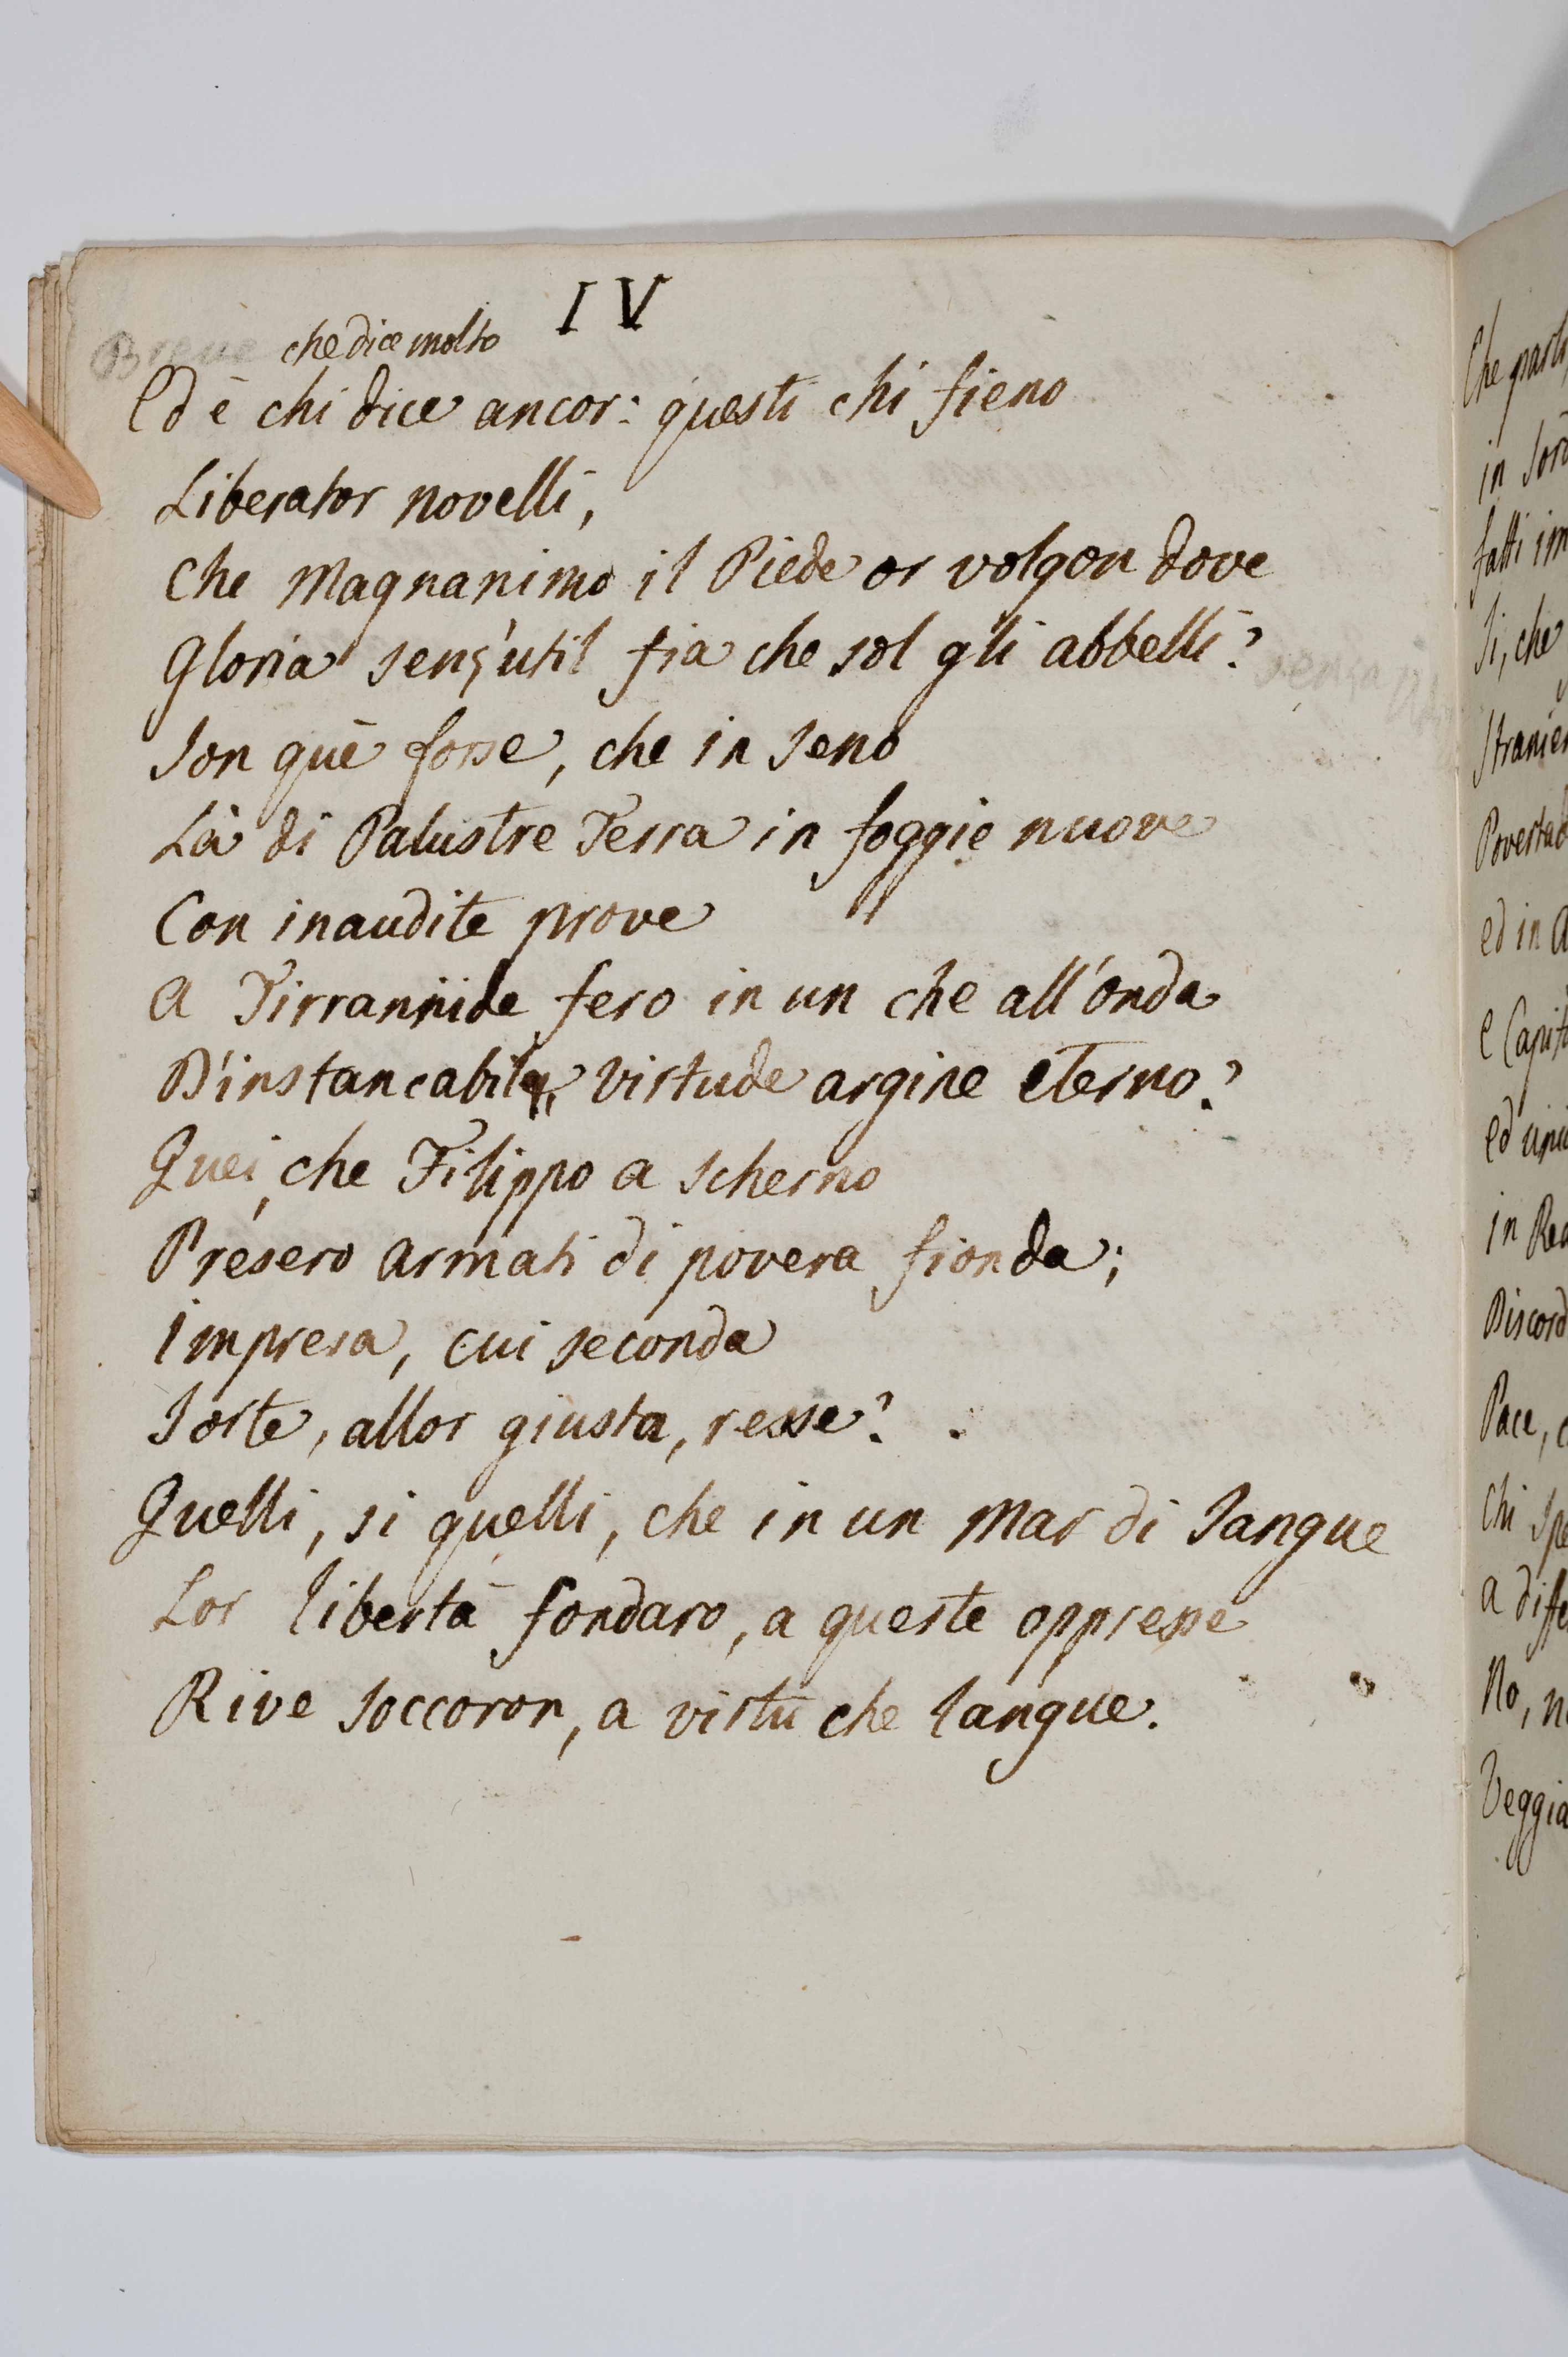 IV
Breve che dice molto
Ed è chi dice ancor: questi chi fieno
Liberator novelli,
Che Magnanimo il Piede or volgon dove
Gloria senz'util fia che sol gli abbelli?
senza
Son què forse, che in seno
Là di Palustre Terra in foggie nuove
Con inaudite prove
A Tirrannide fero in un che all'onda
D'instancabile virtude argine eterno?
Quei, che Filippo a scherno
Présero armati di povera fionda;
Impresa, cui seconda
Sorte, allor giusta, resse?
Quelli, si quelli, che in un Mar di Sangue
Lor libertà fondaro, a queste oppresse
Rive soccoron, a virtù che langue.
Che
in
fatti
Si, che
ed in
e
ed
in
Pace,
Chi
a
No,